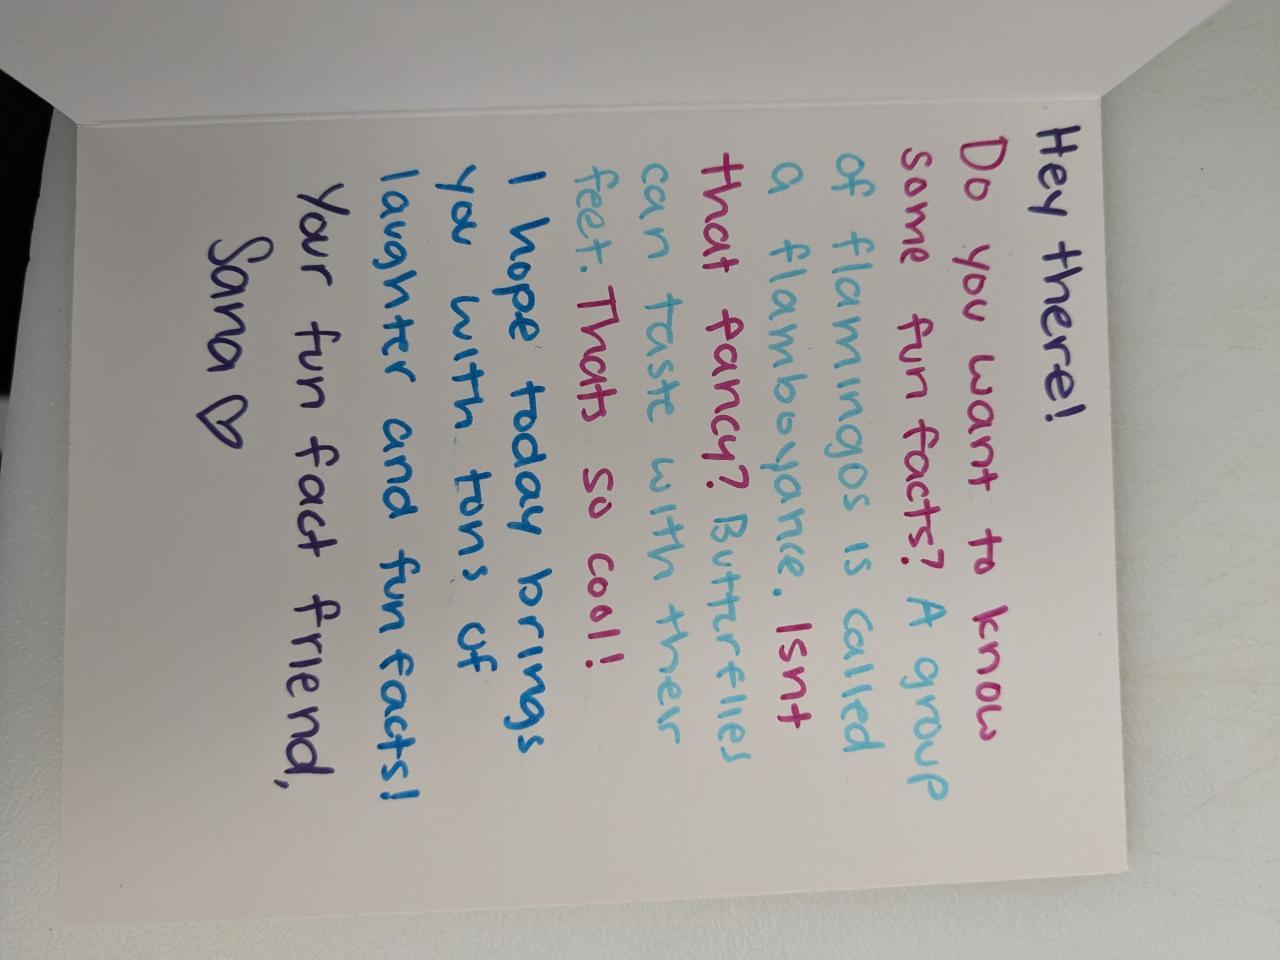 Hey there!
Do you want to know
some fun facts? A group
of flamingos is called
a flamboyance. Isnt
that fancy? Butterflies
can taste with their
feet. Thats so cool!
I hope today brings
you with tons of
laughter and fun facts!
Your fun fact friend,
Sana ♡